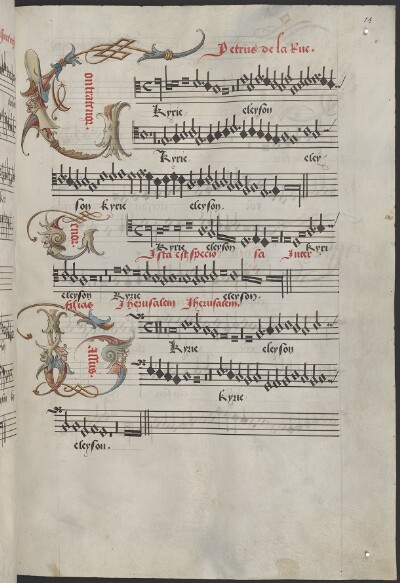 14
Petrus de la Rue.
Contratenor
Kyrie eleyson
Kyrie eley
son Kyrie eleyson.
Tenor
Kyrie eleyson Kyri
Ista est specio sa Inter
eleyson Kyrie eleyson.
filias Jherusalem Jherusalem
Bassus
Kyrie eleyson
Kyrie
eleyson.